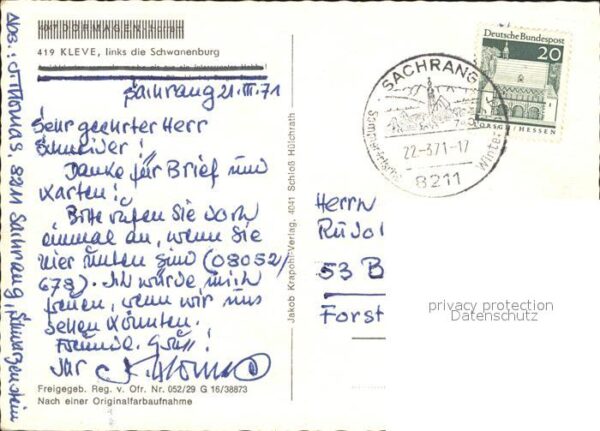 419 KLEVE, links die Schwanenburg
Sachrang 21. III. 71
Sehr geehrter Herr
Schneider!
Danke für Brief und
Karten!
Bitte rufen Sie doch
einmal an, wenn Sie
hier unten sind (08052/
678). Ich würde mich
freuen, wenn wir uns
sehen könnten.
Freundl. Grüß!
Ihr
Freigegeb. Reg. v. Ofr. Nr. 052/29 G 16/38873
Nach einer Originalfarbaufnahme
Abs.: St. Thomas, 8211 Sachrang, Schwarzenstein
Jakob Krapohl-Verlag, 4041 Schloß Hülchrath
SACHRANG
22.-3.71-17
8211
Deutsche Bundespost
20
LORSCH / HESSEN
Herrn
Rudol
53 B
Forst
privacy protection
Datenschutz